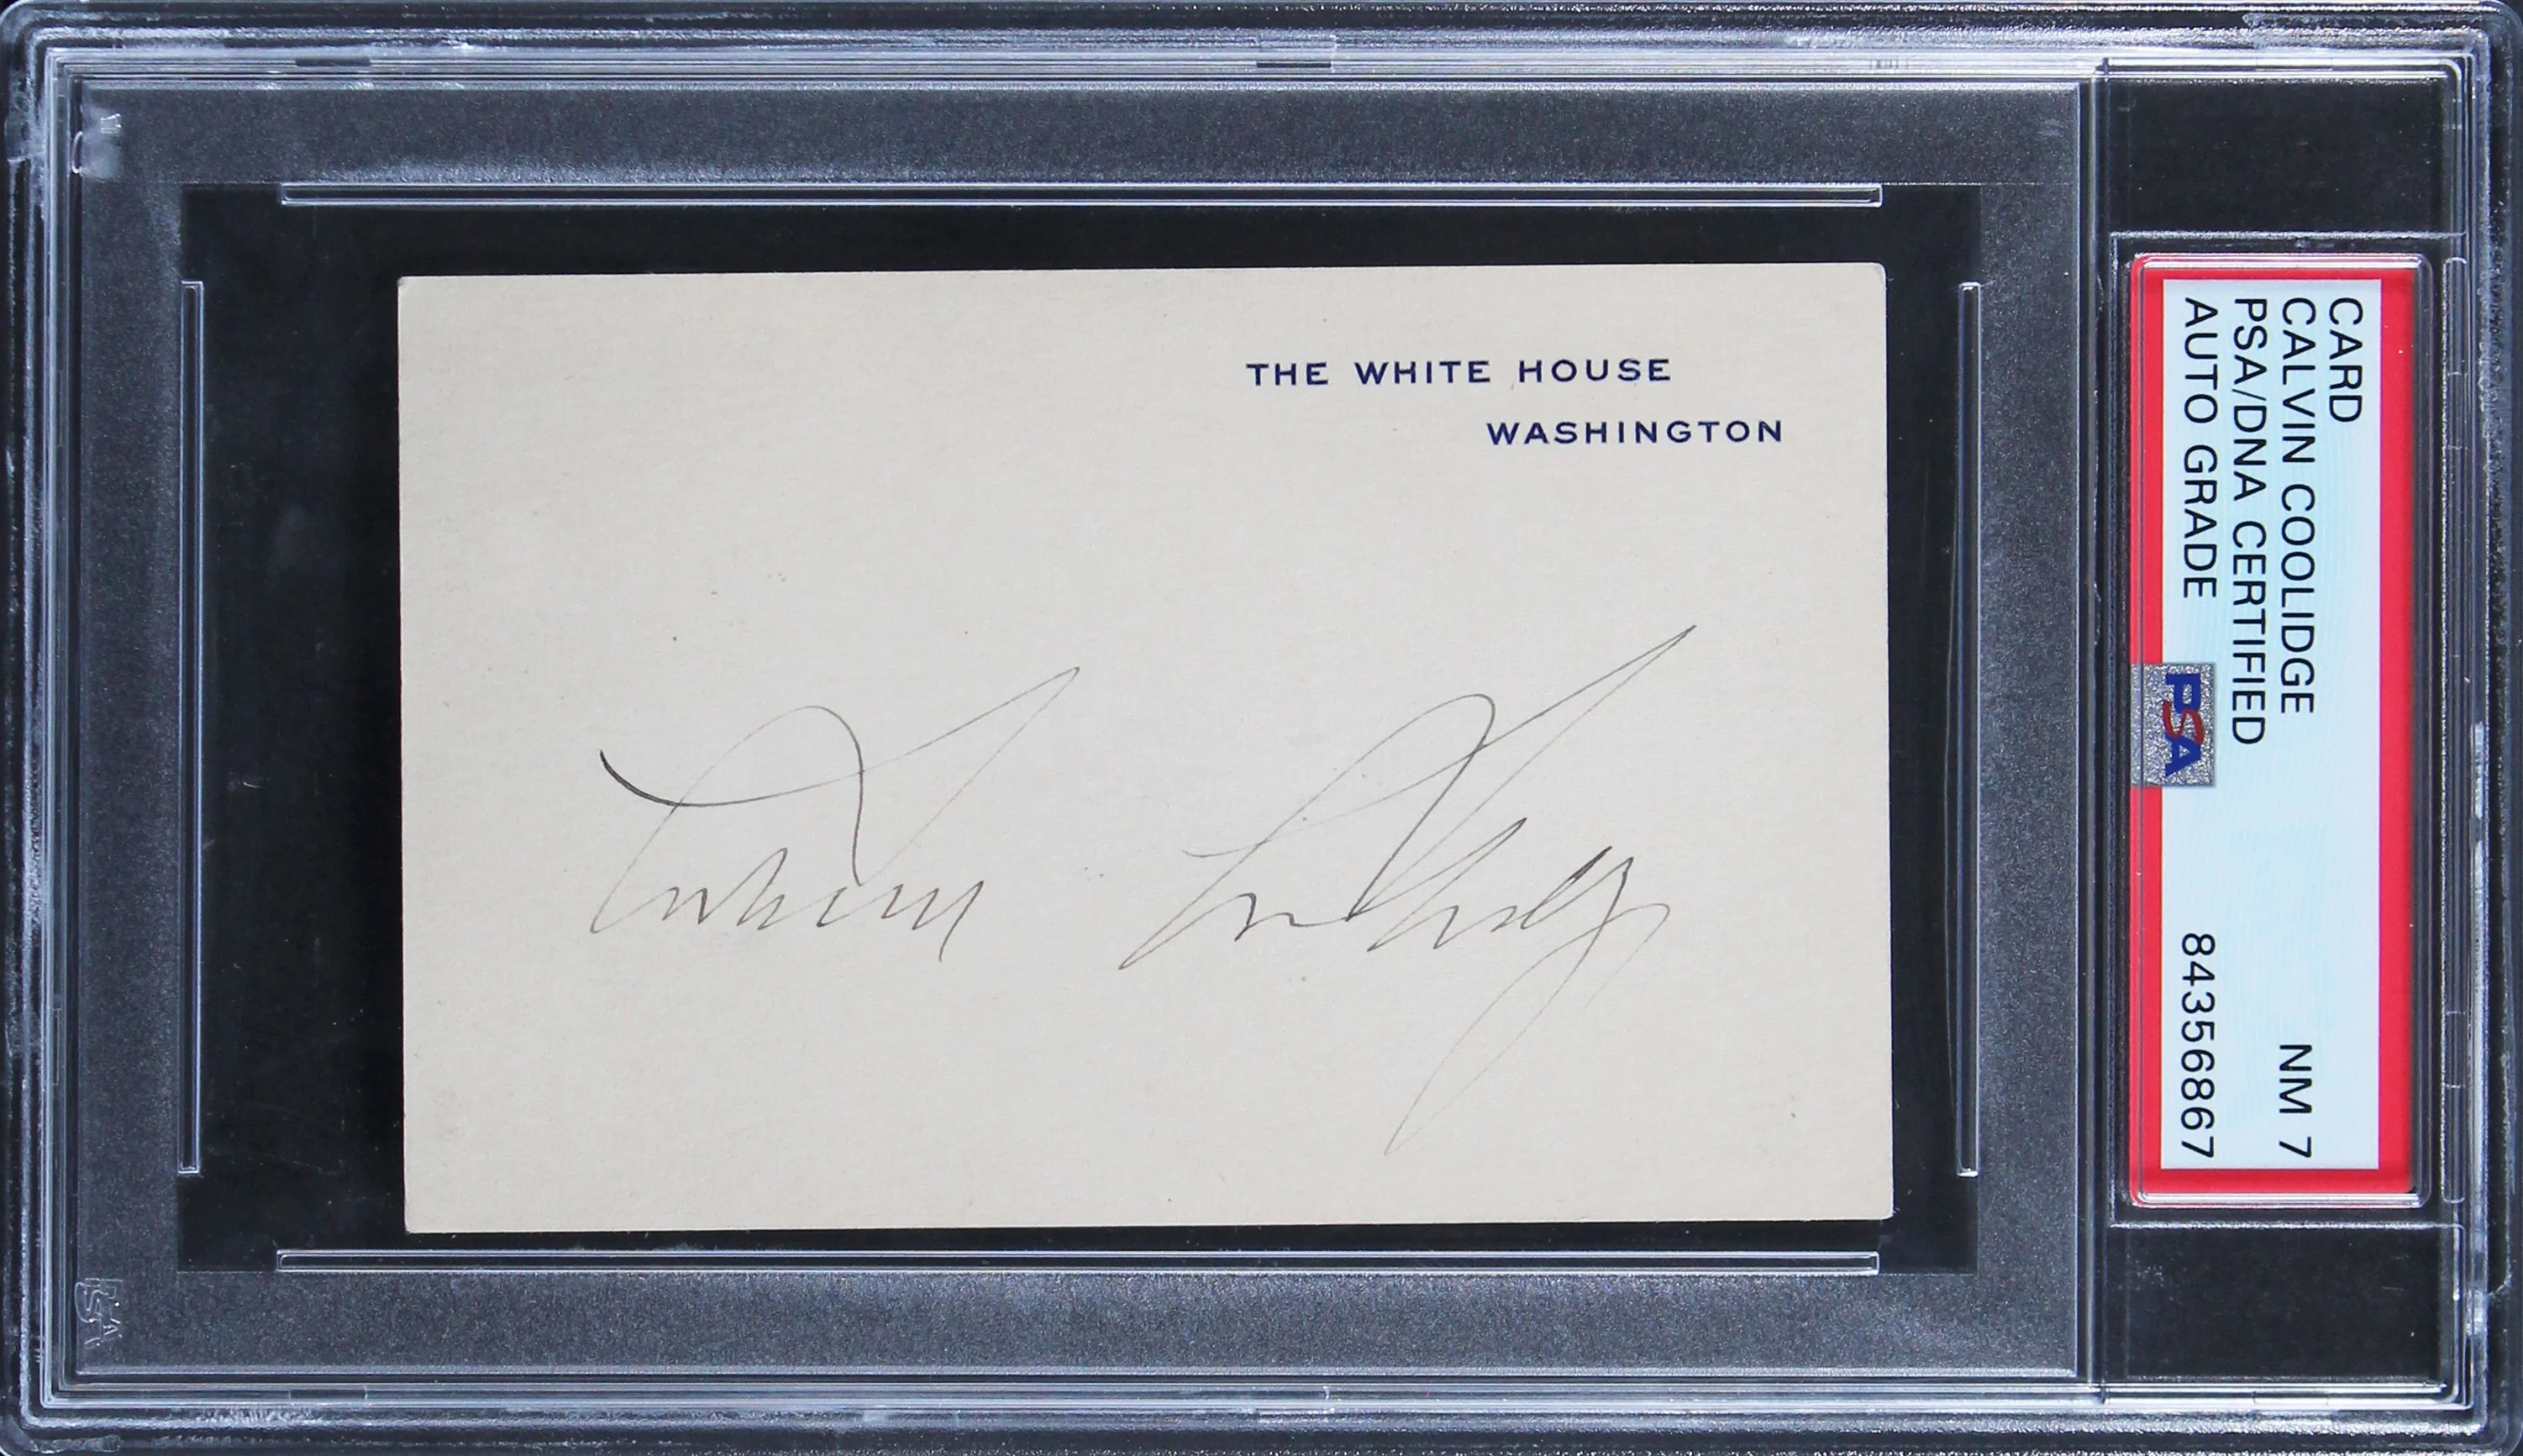 THE WHITE HOUSE
WASHINGTON
Calvin Coolidge
CARD
CALVIN COOLIDGE NM 7
PSA/DNA CERTIFIED
AUTO GRADE 84356867
PSA
PSA